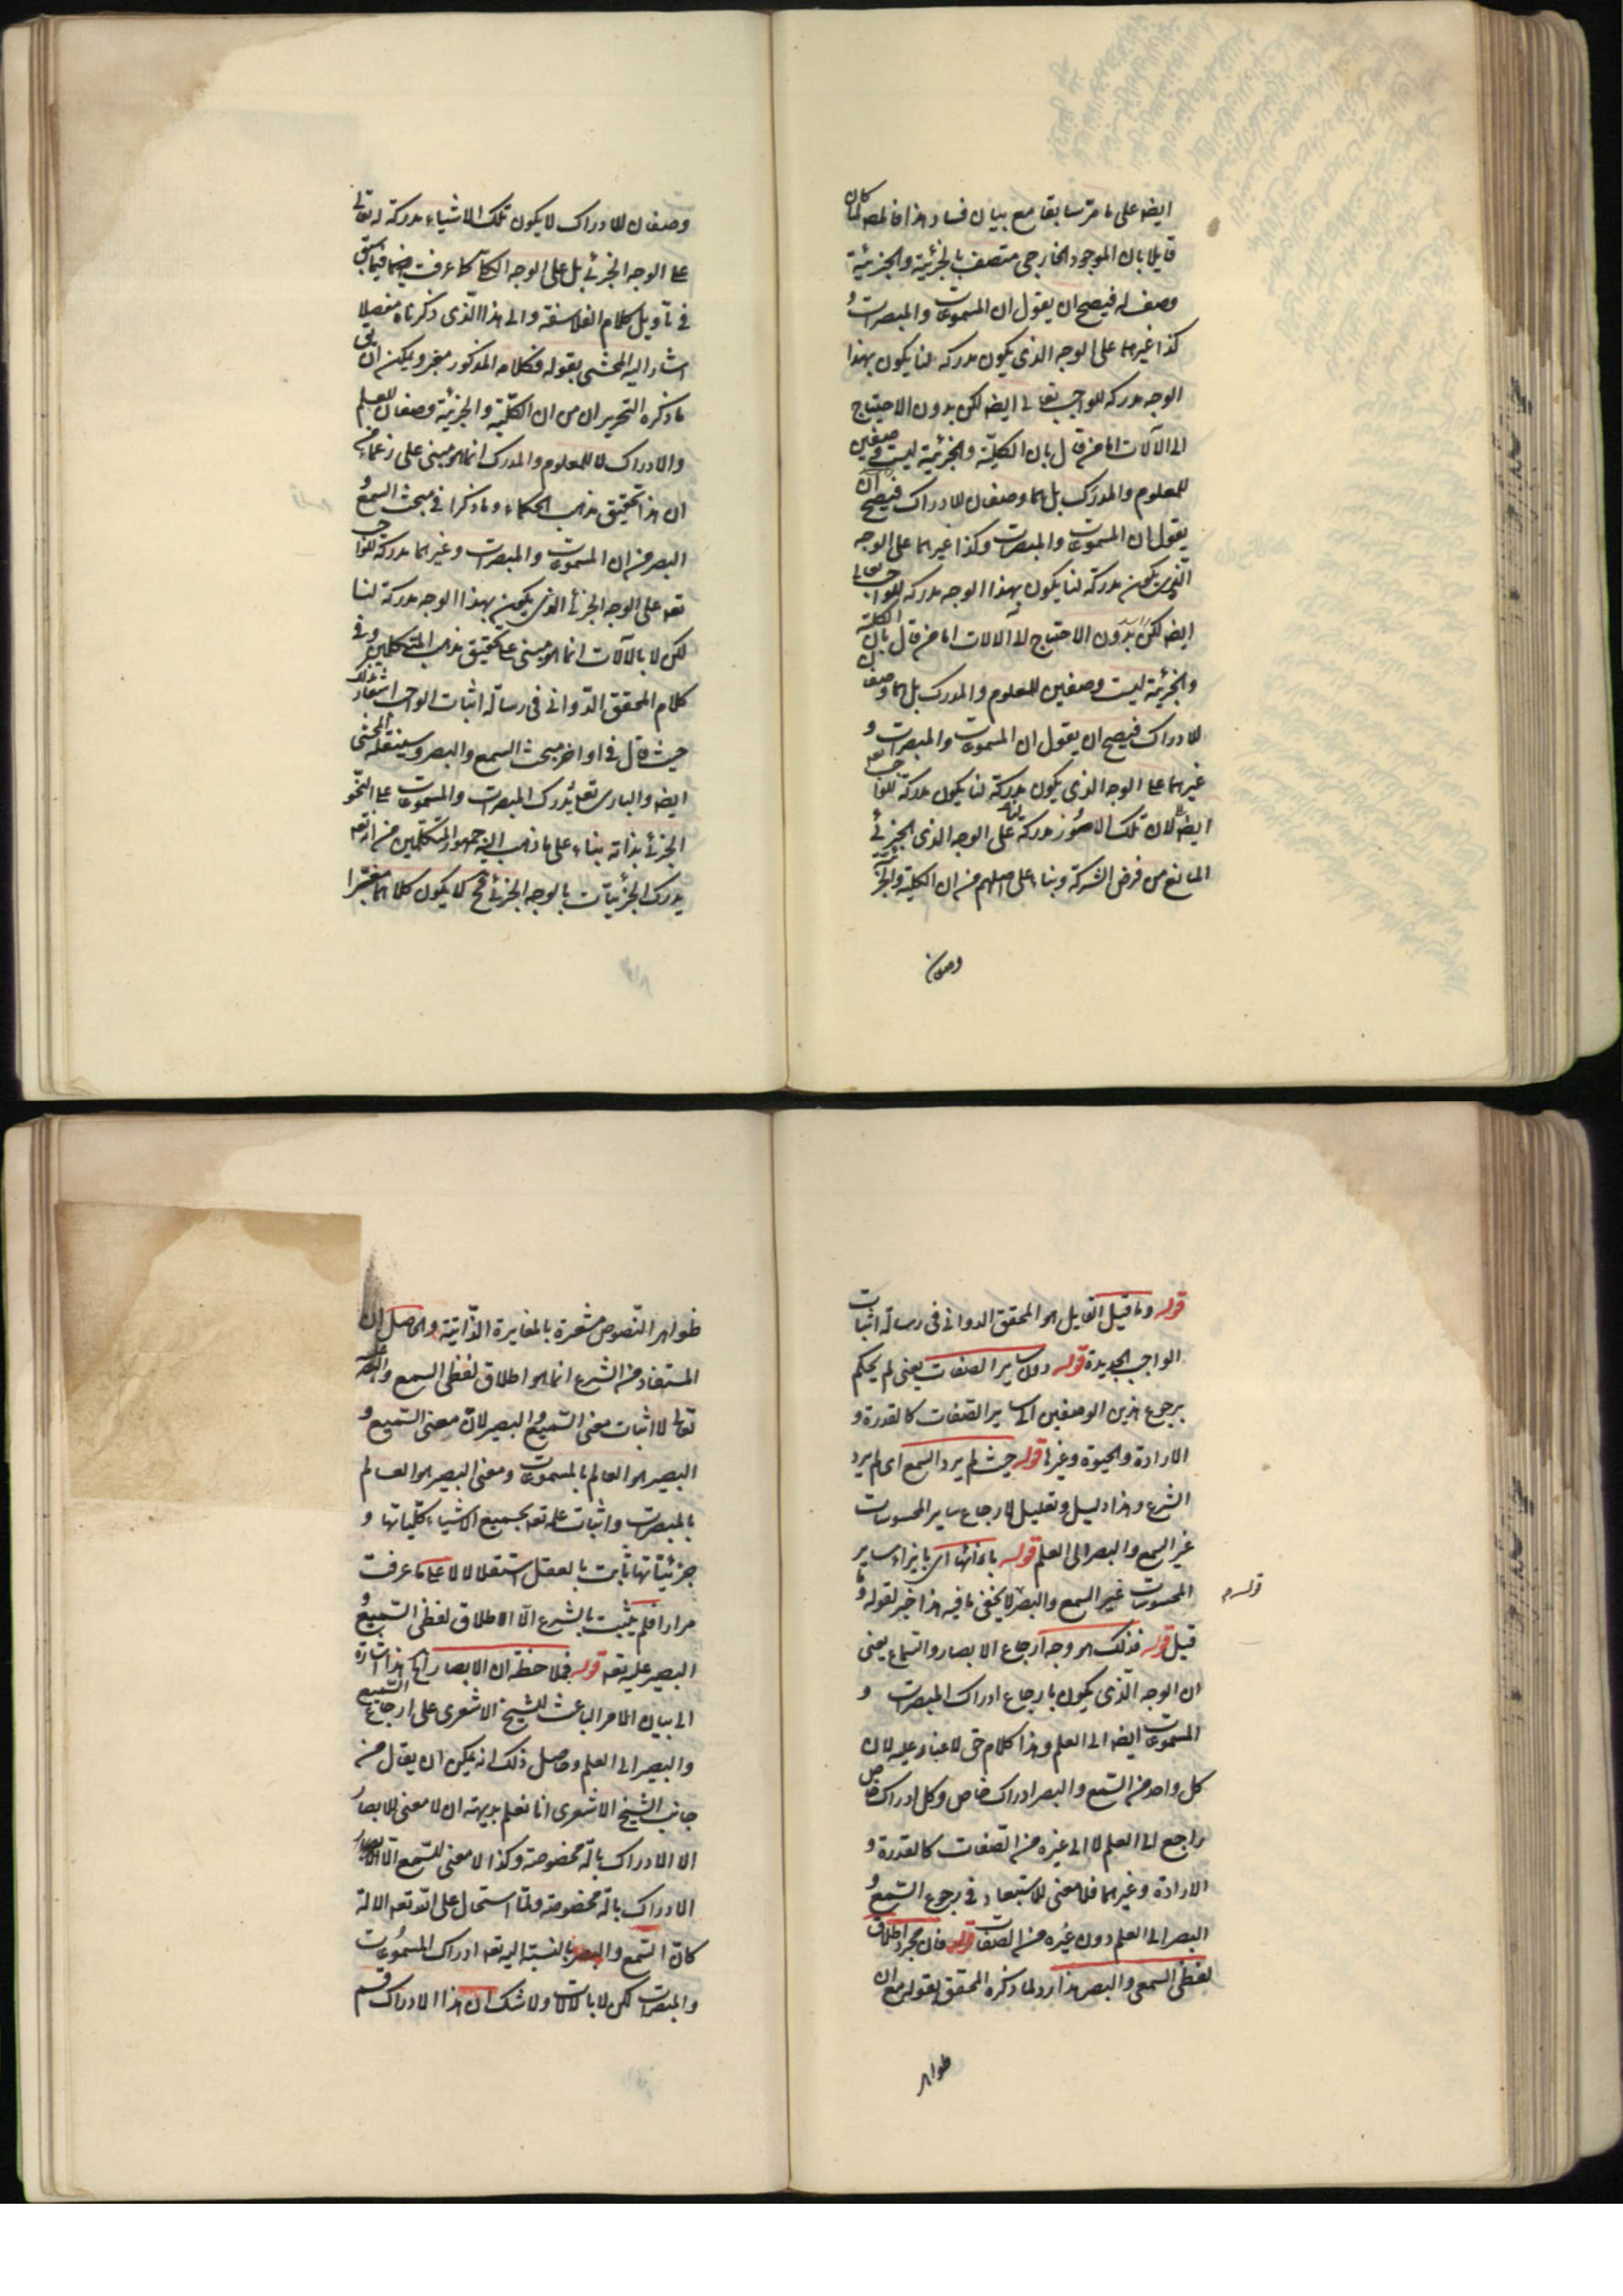 ايضا على ما مر سابقا مع بيان فساد هذا فالمص لما كان
قايلا بان الموجود الخارجى متصف بالجزئية والجزئية
وصف له فيصح ان يقول ان المسموعات والمبصرات و
كذا غيرهما على الوجه الذى يكون مدركه لنا يكون بهذا
الوجه مدركه للواجب تعالى ايضا لكن بدون الاحتياج
الى الآلات اما من قال بان الكلية والجزئية ليست وصفين
للمعلوم والمدرك بل هما وصفان للادراك فيصح ان
يقول ان المسموعات والمبصرات وكذا غيرهما على الوجه
الذى يكون مدركة لنا يكون بهذا الوجه مدركه للواجب تعالى
ايضا لكن بدون الاحتياج لآلالات اما من قال بان الكلية
والجزئية ليست وصفين للمعلوم والمدرك بل هما وصفان
للادراك فيصح ان يقول ان المسموعات والمبصرات و
غيرهما على الوجه الذى يكون مدركة لنا يكون مدركة للواجب تعه
ايضا لان تلك الامور مدركة لنا على الوجه الذى الجزئى
المانع من فرض الشركة وبناء على اصلهم من ان الكلية والجزئية
وصفان
وصفان للادراك لا يكون تلك الاشياء مدركة له تعالى
على الوجه الجزئى بل على الوجه الكلى كما عرفت ايضا فيما سبق
فى تأويل كلام الفلاسفة والى هذا الذى ذكرناه مفصلا
اشار اليه المحشى بقوله فكلامه المذكور ويمكن ان يق
ما ذكره التحرير ان من ان الكلية والجزئية وصفان للعلم
والادراك لا للمعلوم والمدرك انما هو مبنى على زعمهما من
ان هذا تحقيق مذهب الحكماء وما ذكرا فى مبحث السمع و
البصر من ان المسموعات والمبصرات وغيرهما مدركة للواجب
تعه على الوجه الجزئى الذى يكون بهذا الوجه مدركة لنا
لكن لا بالآلات انما هو مبنى على تحقيق مذهب المتكلمين وفى
كلام المحقق الدوانى فى رسالة اثبات الواجب اشعار بذلك
حيث قال فى اواخر مبحث السمع والبصر وسينقله المحشى
ايضا والبارى تعالى يدرك المبصرات والمسموعات على النحو
الجزئى بذاته بناء على ما ذهب اليه جمهور المتكلمين من انه تعه
يدرك الجزئيات بالوجه الجزئى فح لا يكون كلامهما مفتقرا
قوله وما قيل القايل هو المحقق الدوانى فى رسالة اثبات
الواجب الجديدة قوله دون ساير الصفات يعنى لم يحكم
برجوع هذين الوصفين الى ساير الصفات كالقدرة و
الارادة والحيوة وغيرها قوله حيث لم يرد السمع اى لم يرد
الشرع وهذا دليل وتعليل لارجاع ساير المحسوسات
غير السمع والبصر الى العلم قوله بازائها اى بازاء ساير
المحسوسات غير السمع والبصر لا يخفى ما فيه هذا خبر لقوله وما
قوله
قيل قوله فذلك هو وجه ارجاع الابصار والسماع يعنى
ان الوجه الذى يكون بارجاع ادراك المبصرات و
المسموعات ايضا الى العلم وهذا كلام حق لا غبار عليه لان
كل واحد من السمع والبصر ادراك خاص وكل ادراك خاص
راجع الى العلم لا الى غيره من الصفات كالقدرة و
الارادة وغيرهما فلا معنى للاستبعاد فى رجوع السمع و
البصر الى العلم دون غيره من الصفات قوله فان مجرد اطلاق
لفظى السمع والبصر هذا رد لما ذكره المحقق بقوله مع ان
ظواهر
ظواهر النصوص مشعرة بالمغايرة الذاتية والحاصل ان
المستفاد من الشرع انما هو اطلاق لفظى السمع والبصر عليه
تعالى لا اثبات معنى السميع والبصير لان معنى السميع و
البصير هو العالم بالمسموعات ومعنى البصير هو العالم
بالمبصرات واثبات علمه تعه بجميع الاشياء كلياتها و
جزئياتها ثابت بالعقل استقلالا لا على ما عرفت
مرارا فلم يثبت بالشرع الا الاطلاق لفظى السميع و
البصير عليه تعه قوله فملاحظة ان الابصار الخ هذا اشارة
الى بيان الامر الباعث للشيخ الاشعرى على ارجاع السميع
والبصير الى العلم وحاصل ذلك انه يمكن ان يقال من
جانب الشيخ الاشعرى انا نعلم بديهة ان لا معنى للابصار
الا الادراك بآلة مخصوصة وكذا لا معنى للسمع الا
الادراك بالة مخصوصة ولما استحال على الله تعه الالة
كان السمع والبصر بالنسبة اليه تعه ادراك المسموعات
والمبصرات لكن لا بالآلات ولا شك ان هذا الادراك قسم